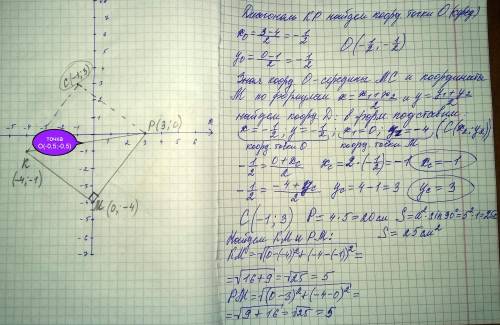 C(-1;3)
-5 -4
P(3;0)
точка
O(-0,5;-0,5)
K
(-4;-1)
M(0;-4)
Диагональ KP найдем коорд. точки O (серед)
x₀ = (3-4)/2 = -1/2
O(-1/2; -1/2)
y₀ = (0-1)/2 = -1/2
Зная коорд. O-середины MC и координаты
M по формулам x = (x₁+x₂)/2 и y = (y₁+y₂)/2
найдем коорд. D: в форм. подставим
x = -1/2, y = -1/2, x₁ = 0; y₁ = -4, (C(x₂; y₂)
коорд. точки O коорд. точки M
-1/2 = (0+x_c)/2 x_c = 2·(-1/2) = -1 x_c = -1
-1/2 = (-4+y_c)/2 y_c = 4-1 = 3 y_c = 3
C(-1;3) P = 4·5 = 20см S = a²·sin90° = 5²·1 = 25см
Найдем KM и PM: S = 25см²
KM = √(0-(-4))²+(-4-(-1))² =
= √16+9 = √25 = 5
PM = √(0-3)²+(-4-0)² =
= √9+16 = √25 = 5